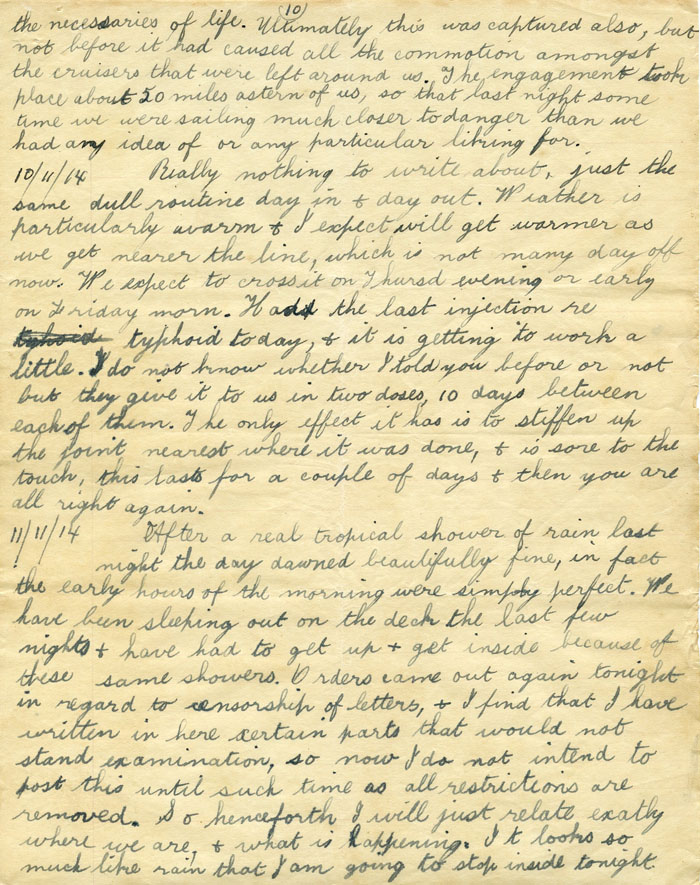 (10)
the necessaries of life. Ultimately this was captured also, but
not before it had caused all the commotion amongst
the cruisers that were left around us. The engagement took
place about 50 miles astern of us, so that last night some
time we were sailing much closer to danger than we
had any idea of or any particular likring for.
10/11/14 Really nothing to write about, just the
same dull routine day in & day out. Weather is
particularly warm & I expect will get warmer as
we get nearer the line, which is not many day off
now. We expect to cross it on Thursd evening or early
on Friday morn. Had the last injection re
tyhoid typhoid today, & it is getting to work a
little. I do not know whether I told you before or not
but they give it to us in two doses, 10 days between
each of them. The only effect it has is to stiffen up
the joint nearest where it was done, & is sore to the
touch, this lasts for a couple of days & then you are
all right again.
11/11/14 After a real tropical shower of rain last
night the day dawned beautifully fine, in fact
the early hours of the morning were simply perfect. We
have been sleeping out on the deck the last few
nights & have had to get up & get inside because of
these same showers. Orders came out again tonight
in regard to censorship of letters, & I find that I have
written in here certain parts that would not
stand examination, so now I do not intend to
post this until such time as all restrictions are
removed. So henceforth I will just relate exatly
where we are, & what is happening. It looks so
much like rain that I am going to stop inside tonight.